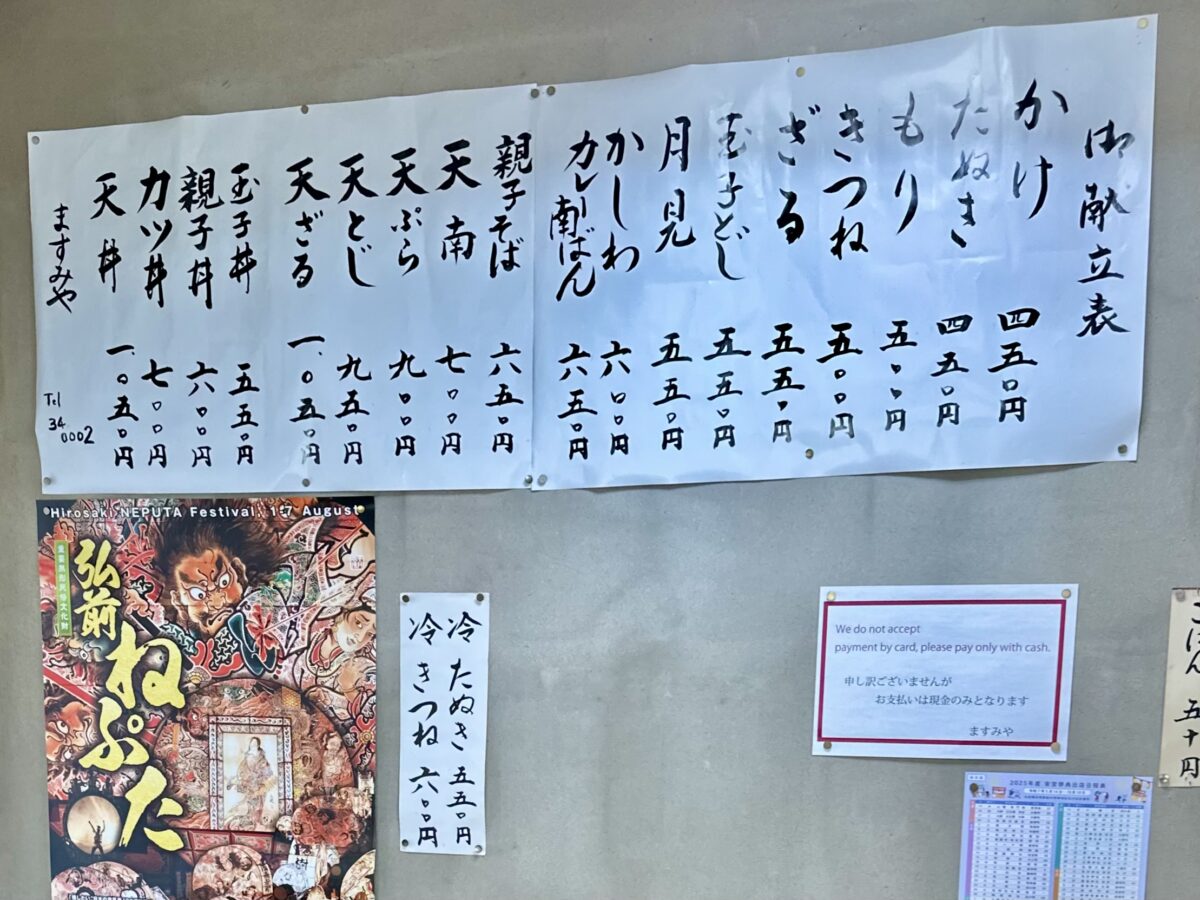 御献立表
かけ 四五〇円
たぬき 四五〇円
もり 五〇〇円
きつね 五〇〇円
ざる 五五〇円
玉子とじ 五五〇円
月見 五五〇円
かしわ 六〇〇円
カレー南ばん 六五〇円
親子そば 六五〇円
天南 七〇〇円
天ぷら 九〇〇円
天とじ 九五〇円
天ざる 一、〇五〇円
玉子丼 五五〇円
親子丼 六〇〇円
カツ丼 七〇〇円
天丼 一、〇五〇円
ますみや
Tel
34
0002
Hirosaki NEPUTA Festival, 1-7 August
重要無形民俗文化財
弘前
ねぷた
冷たぬき 五五〇円
冷きつね 六〇〇円
We do not accept
payment by card, please pay only with cash.
申し訳ございませんが
お支払いは現金のみとなります
ますみや
ごはん 五十円